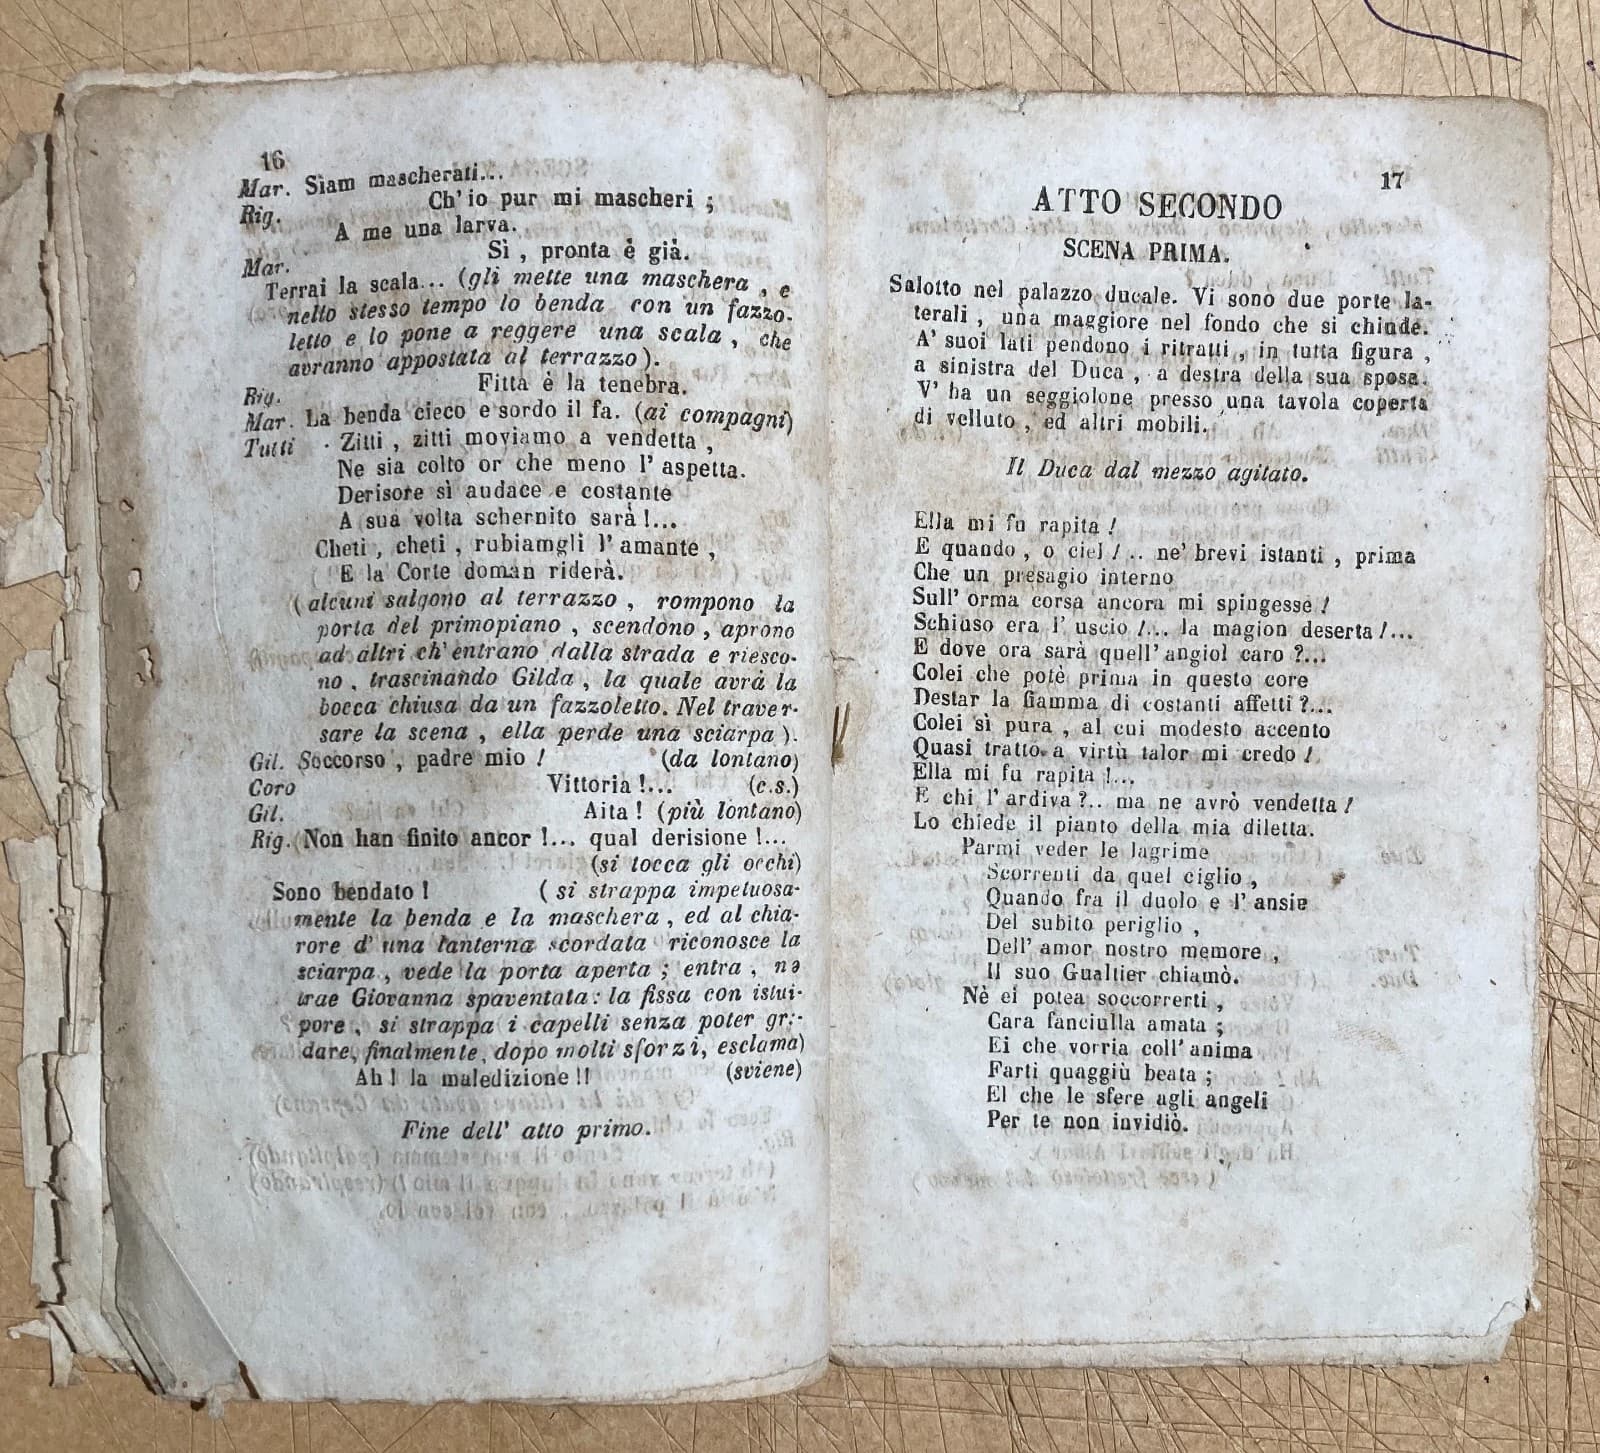 16
Mar. Siam mascherati...
Rig. Ch' io pur mi mascheri ;
A me una larva.
Mar. Sì , pronta è già.
Terrai la scala... (gli mette una maschera , e
nello stesso tempo lo benda con un fazzo-
letto e lo pone a reggere una scala , che
avranno appostata al terrazzo ).
Rig. Fitta è la tenebra.
Mar. La benda cieco e sordo il fa. (ai compagni)
Tutti Zitti , zitti moviamo a vendetta ,
Ne sia colto or che meno l' aspetta.
Derisore sì audace e costante
A sua volta schernito sarà !...
Cheti , cheti , rubiamgli l' amante ,
E la Corte doman riderà.
( alcuni salgono al terrazzo , rompono la
porta del primopiano , scendono , aprono
ad altri ch' entrano dalla strada e riesco-
no , trascinando Gilda , la quale avrà la
bocca chiusa da un fazzoletto. Nel traver-
sare la scena , ella perde una sciarpa ).
Gil. Soccorso , padre mio ! (da lontano)
Coro Vittoria !... (c.s.)
Gil. Aita ! (più lontano)
Rig. Non han finito ancor !... qual derisione !...
(si tocca gli occhi)
Sono bendato ! ( si strappa impetuosa-
mente la benda e la maschera , ed al chia-
rore d' una lanterna scordata riconosce la
sciarpa , vede la porta aperta ; entra , ne
trae Giovanna spaventata : la fissa con istui-
pore , si strappa i capelli senza poter gri-
dare, finalmente, dopo molti sforzi, esclama)
Ah ! la maledizione !! (sviene)
Fine dell' atto primo.
17
ATTO SECONDO
SCENA PRIMA.
Salotto nel palazzo ducale. Vi sono due porte la-
terali , una maggiore nel fondo che si chiude.
A' suoi lati pendono i ritratti , in tutta figura ,
a sinistra del Duca , a destra della sua sposa.
V' ha un seggiolone presso una tavola coperta
di velluto , ed altri mobili.
Il Duca dal mezzo agitato.
Ella mi fu rapita !
E quando , o ciel ! .. ne' brevi istanti , prima
Che un presagio interno
Sull' orma corsa ancora mi spingesse !
Schiuso era l' uscio !... la magion deserta !...
E dove ora sarà quell' angiol caro ?...
Colei che potè prima in questo core
Destar la fiamma di costanti affetti ?...
Colei sì pura , al cui modesto accento
Quasi tratto a virtù talor mi credo !
Ella mi fu rapita !...
E chi l' ardiva ?.. ma ne avrò vendetta !
Lo chiede il pianto della mia diletta.
Parmi veder le lagrime
Scorrenti da quel ciglio ,
Quando fra il duolo e l' ansie
Del subito periglio ,
Dell' amor nostro memore ,
Il suo Gualtier chiamò.
Nè ei potea soccorrerti ,
Cara fanciulla amata ;
Ei che vorria coll' anima
Farti quaggiù beata ;
El che le sfere agli angeli
Per te non invidiò.